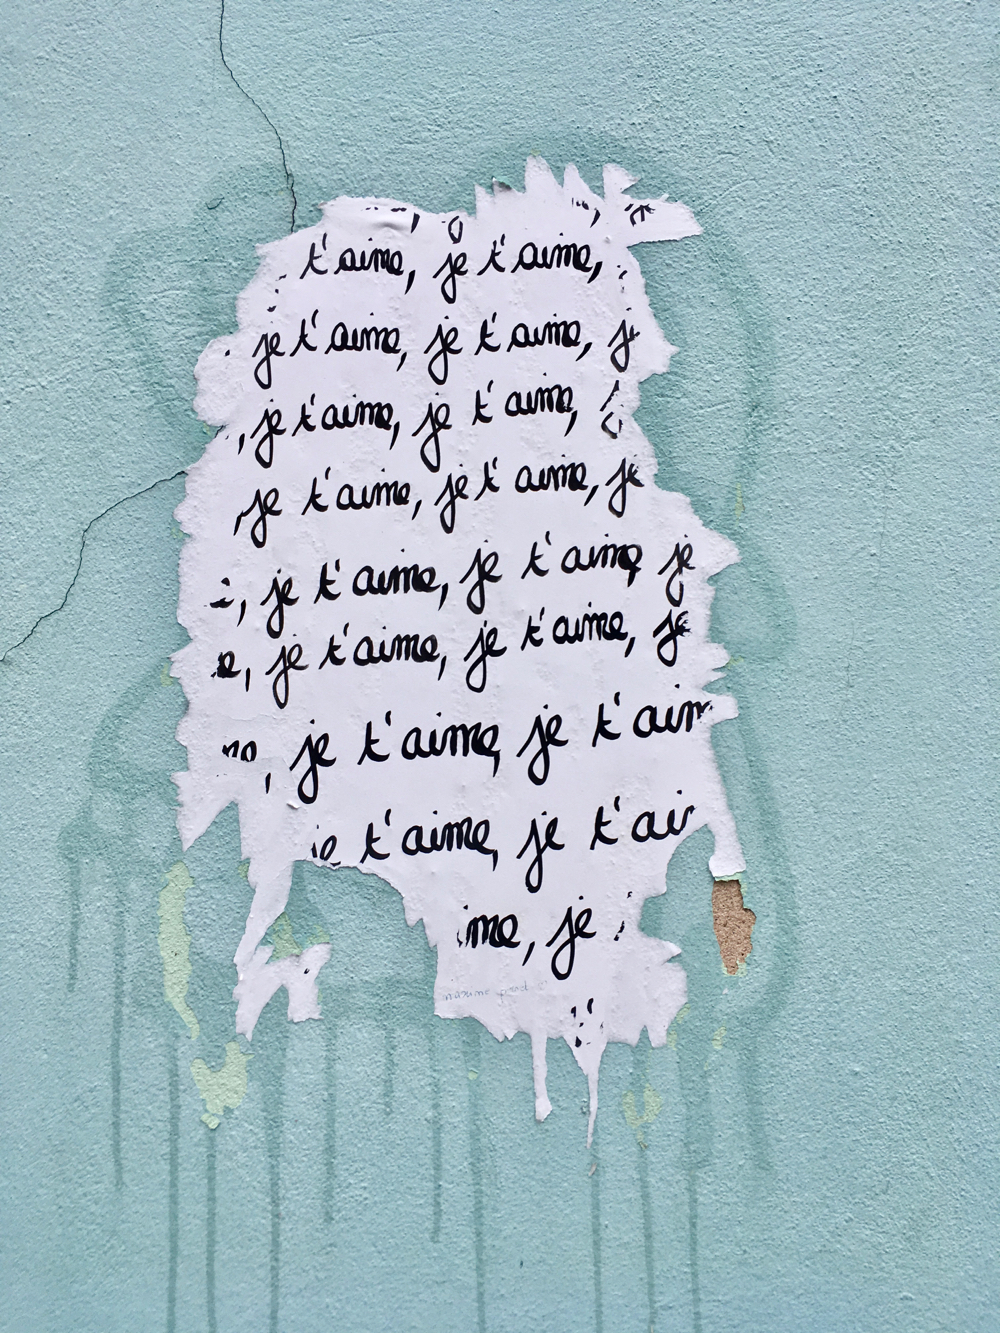 t'aime, je t'aime,
je t'aime, je t'aime, j
, je t'aime, je t'aime,
je t'aime, je t'aime, je
, je t'aime, je t'aime je
e, je t'aime, je t'aime, je
, je t'aime, je t'aim
je t'aime, je t'ai
me, je